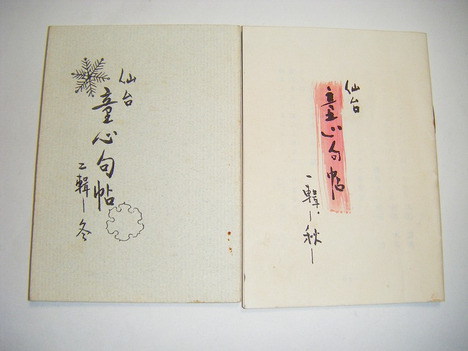 仙台
童心句帖
二輯ー冬
仙台
童心句帖
一輯ー秋ー